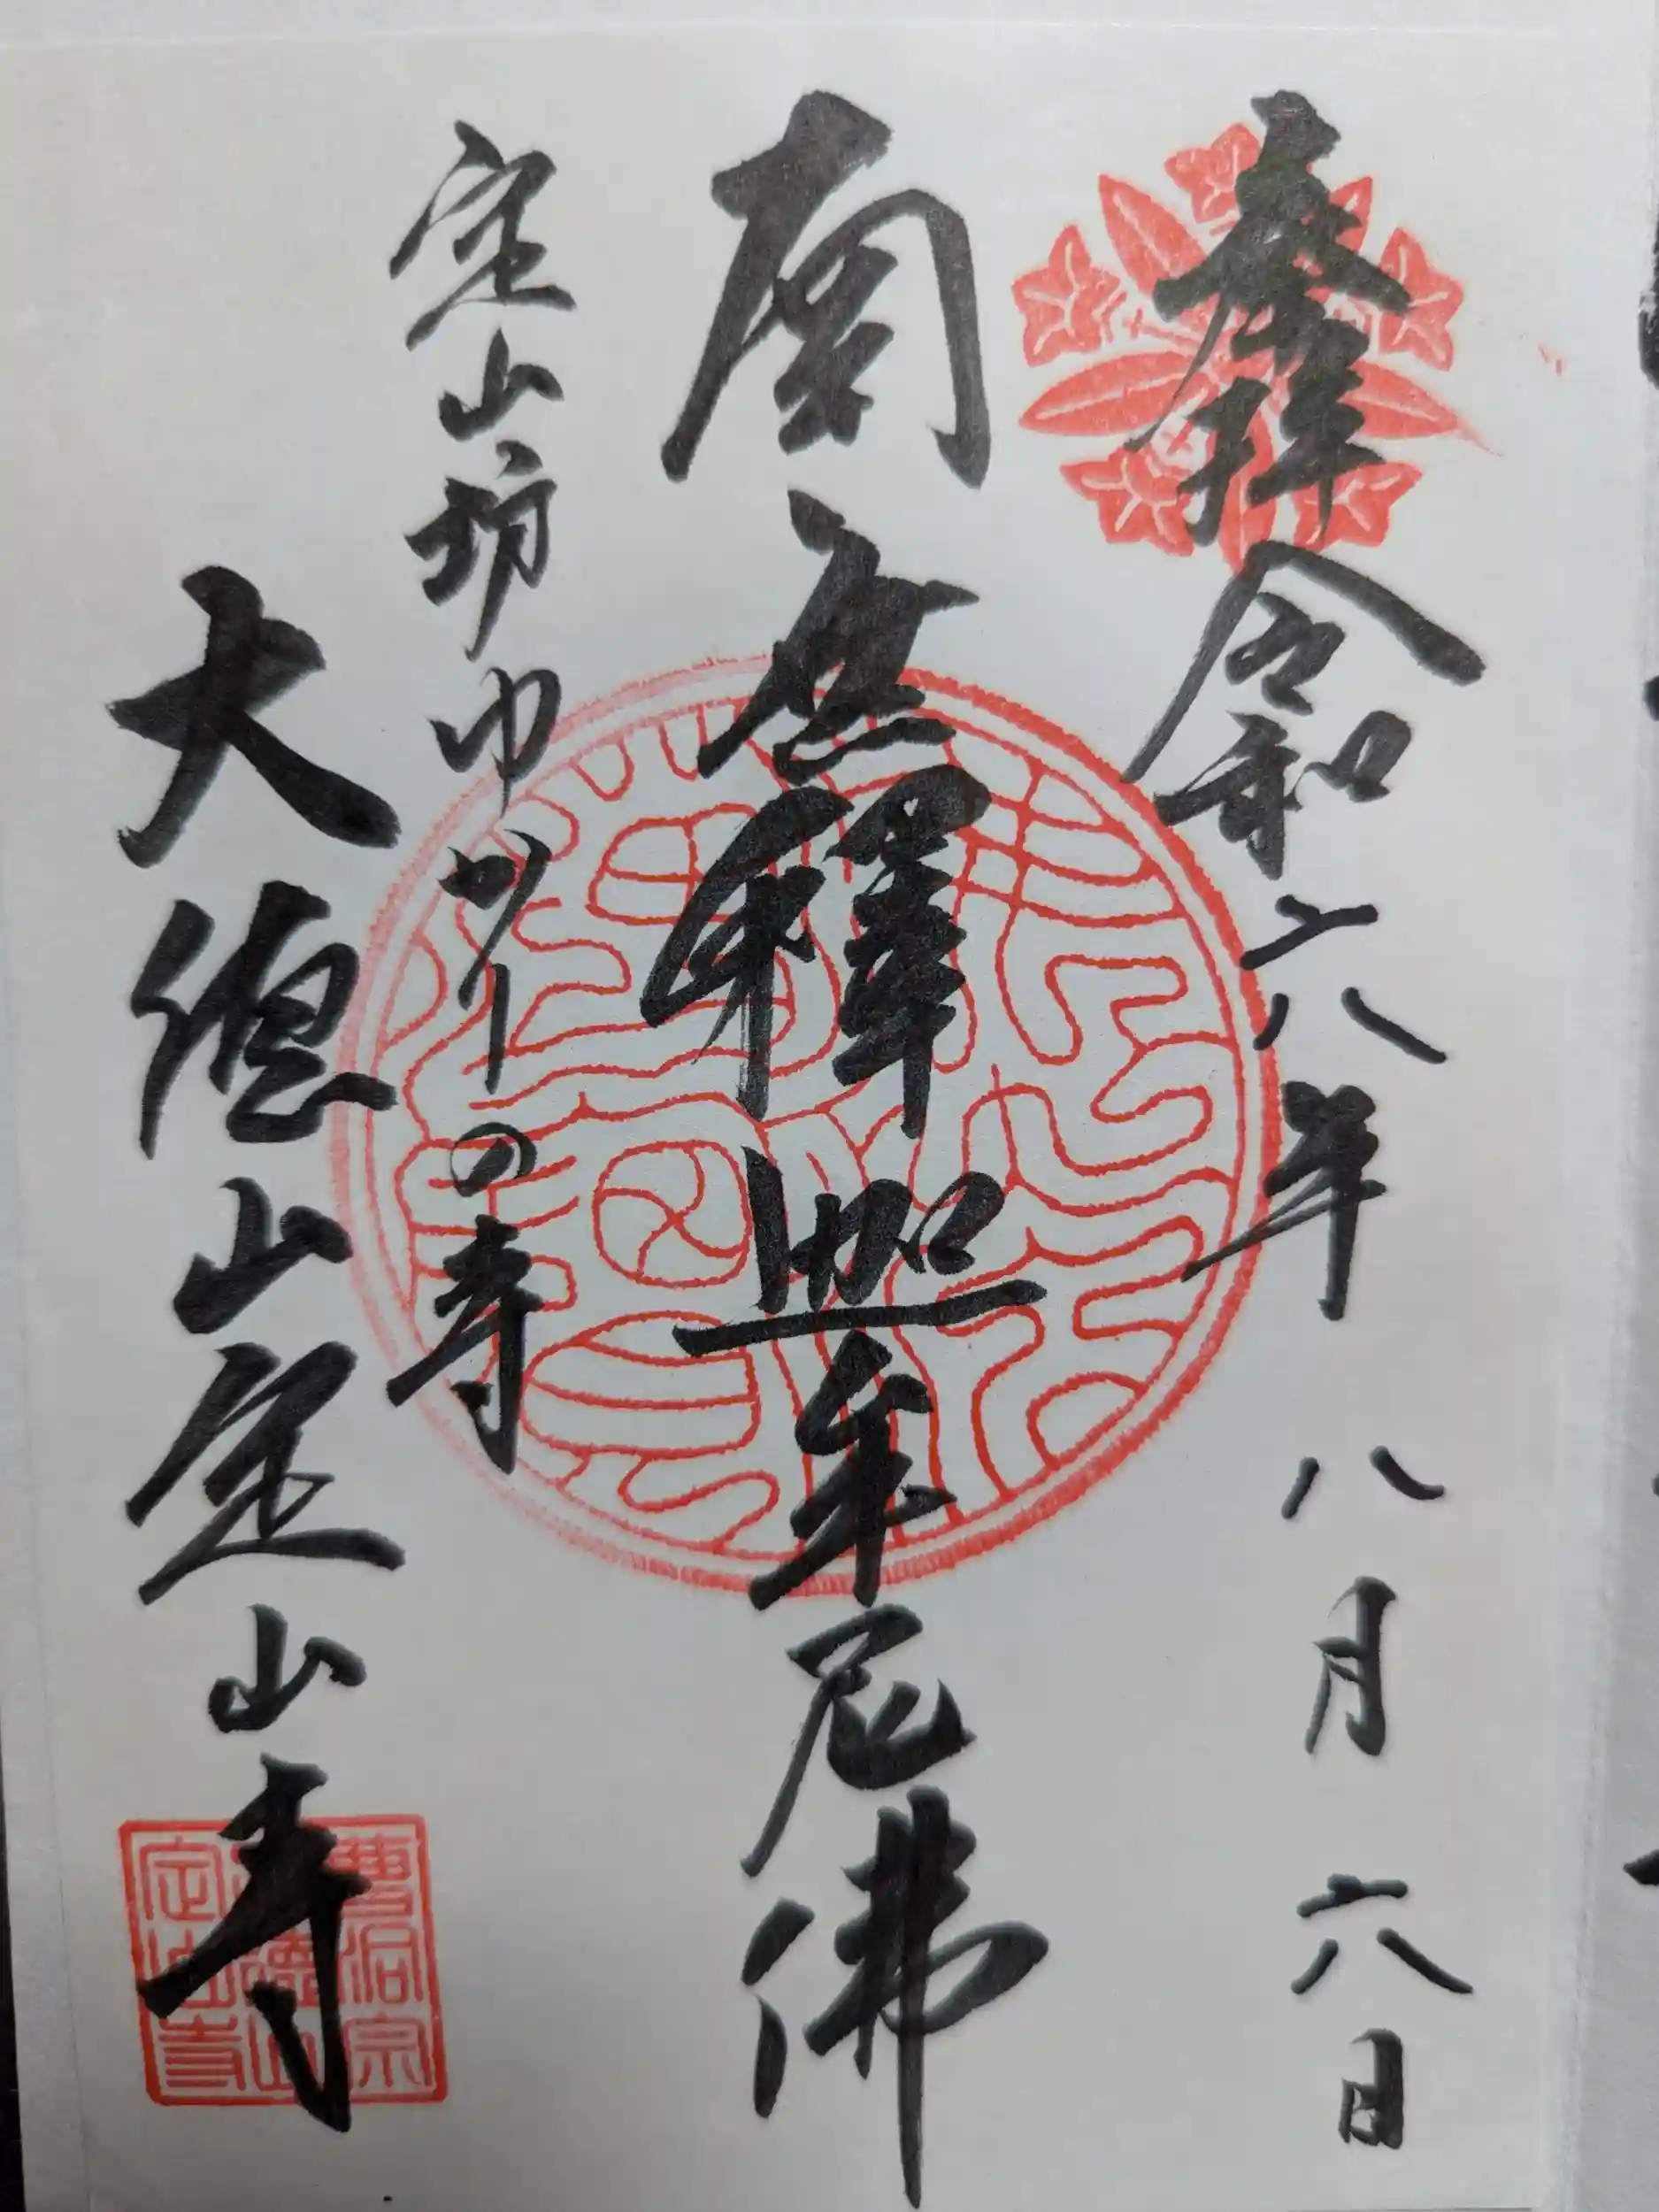 奉拝 令和六年 八月 六日
南無釋迦牟尼佛
定山坊ゆかりの寺
大徳山定山寺
曹洞宗
大徳山
定山寺